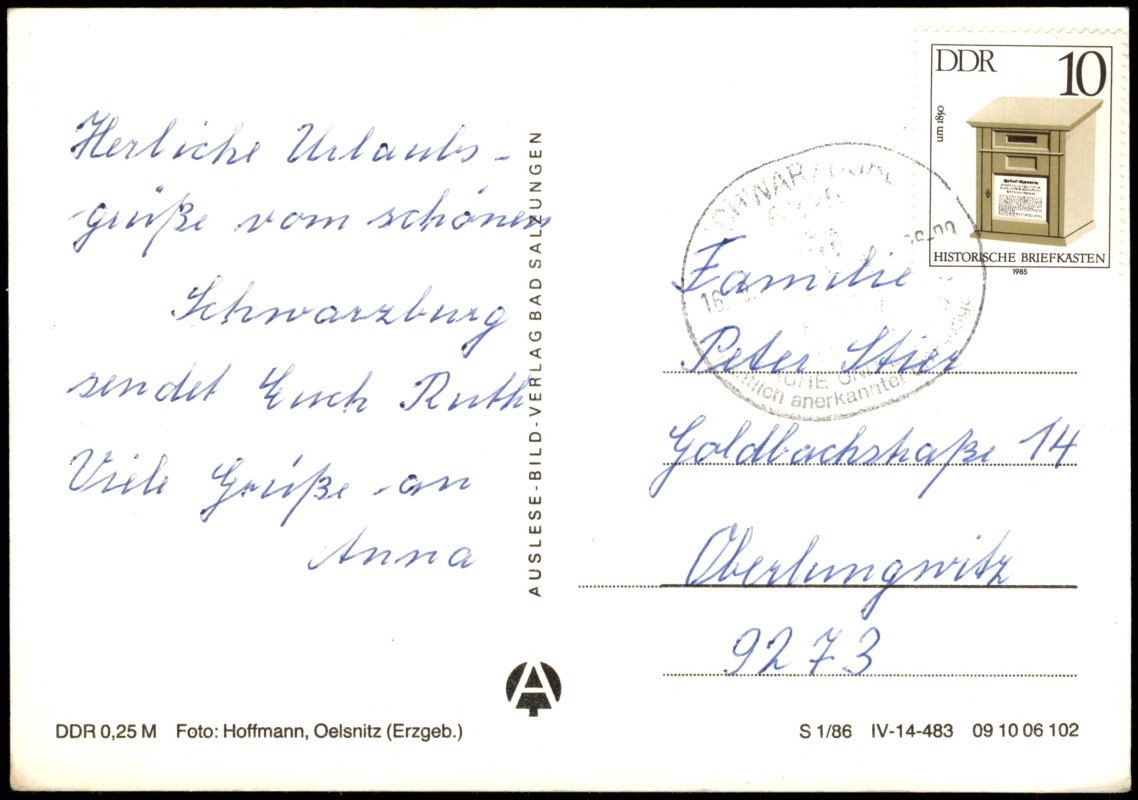 Herliche Urlaubs-
grüße vom schönen
Schwarzburg
sendet Euch Ruth
Viele Grüße an
Anna
AUSLESE-BILD-VERLAG BAD SALZUNGEN
DDR 10
um 1850
HISTORISCHE BRIEFKÄSTEN
1985
Familie
Peter Stier
Goldbachstraße 14
Oberlungwitz
9273
anerkannter
A
DDR 0,25 M Foto: Hoffmann, Oelsnitz (Erzgeb.)
S 1/86 IV-14-483 09 10 06 102